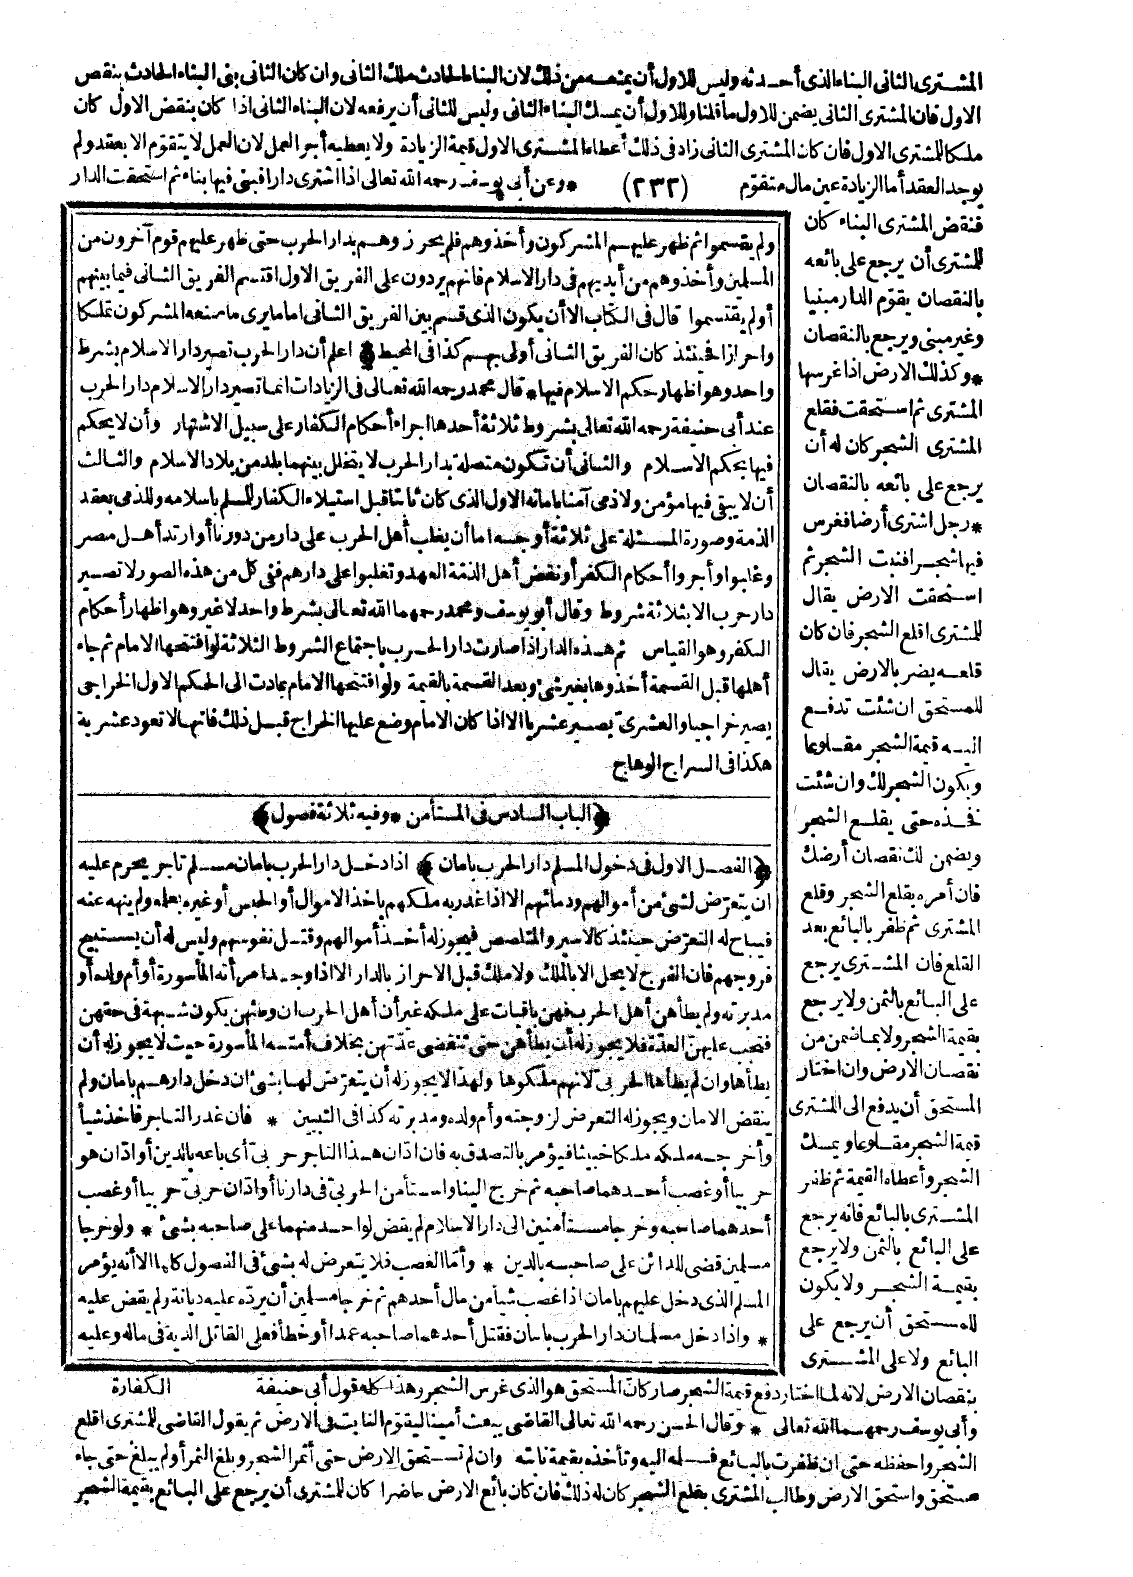 المشترى الثانى البناء الذى أحدثه وليس للاول أن يمنعه من ذلك لان البناء الحادث ملك الثانى وان كان الثانى بنى البناء الحادث بنقض
الاول فان المشترى الثانى يضمن للاول ما قلنا وللاول أن يمسك البناء الثانى وليس للثانى أن يرفعه لان البناء الثانى اذا كان بنقض الاول كان
ملكا للمشترى الاول فان كان المشترى الثانى زاد فى ذلك أعطاه المشترى الاول قيمة الزيادة ولا يعطيه أجر العمل لان العمل لا يتقوم الا بعقد ولم
يوجد العقد أما الزيادة عين مال متقوم (٢٣٢) * وعن أبى يوسف رحمه الله تعالى اذا اشترى دارا فبنى فيها بناء ثم استحقت الدار
فنقض المشترى البناء كان
للمشترى أن يرجع على بائعه
بالنقصان يقوم الدار مبنيا
وغير مبنى ويرجع بالنقصان
* وكذلك الارض اذا غرسها
المشترى ثم استحقت فقلع
المشترى الشجر كان له أن
يرجع على بائعه بالنقصان
* رجل اشترى أرضا فغرس
فيها شجرا فنبت الشجر ثم
استحقت الارض يقال
للمشترى اقلع الشجر فان كان
قلعه يضر بالارض يقال
للمستحق ان شئت تدفع
اليه قيمة الشجر مقلوعا
ويكون الشجر لك وان شئت
فخذه حتى يقلع الشجر
ويضمن لك نقصان أرضك
فان أمره بقلع الشجر وقلع
المشترى ثم ظفر بالبائع بعد
القلع فان المشترى يرجع
على البائع بالثمن ولا يرجع
بقيمة الشجر ولا بما ضمن من
نقصان الارض وان اختار
المستحق أن يدفع الى المشترى
قيمة الشجر مقلوعا ويمسك
الشجر وأعطاه القيمة ثم ظفر
المشترى بالبائع فانه يرجع
على البائع بالثمن ولا يرجع
بقيمة الشجر ولا يكون
للمستحق أن يرجع على
البائع ولا على المشترى
بنقصان الارض لانه لما اختار دفع قيمة الشجر صار كأن المستحق هو الذى غرس الشجر وهذا كله قول أبى حنيفة
وأبى يوسف رحمهما الله تعالى * وقال الحسن رحمه الله تعالى القاضى يبعث أمينا ليقوم النابت فى الارض ثم يقول القاضى للمشترى اقلع
الشجر واحفظه حتى ان ظفرت بالبائع فسلمه اليه وتأخذه بقيمة نابتة وان لم تستحق الارض حتى أثمر الشجر وبلغ الثمر أو لم يبلغ حتى جاء
مستحق واستحق الارض وطالب المشترى بقلع الشجر كان له ذلك فان كان بائع الارض حاضرا كان للمشترى أن يرجع على البائع بقيمة الشجر
ولم يقسموا ثم ظهر عليهم المشركون وأخذوهم فلم يحرزوهم بدار الحرب حتى ظهر عليهم قوم آخرون من
المسلمين وأخذوهم من أيديهم فى دار الاسلام فانهم يردون على الفريق الاول اقتسم الفريق الثانى فيما بينهم
أو لم يقتسموا قال فى الكتاب الا أن يكون الذى قسم بين الفريق الثانى اماما يرى ما صنعه المشركون تملكا
واحرازا فحينئذ كان الفريق الثانى أولى بهم كذا فى المحيط * اعلم أن دار الحرب تصير دار الاسلام بشرط
واحد وهو اظهار حكم الاسلام فيها * قال محمد رحمه الله تعالى فى الزيادات انما تصير دار الاسلام دار الحرب
عند أبى حنيفة رحمه الله تعالى بشروط ثلاثة أحدها اجراء أحكام الكفار على سبيل الاشتهار وأن لا يحكم
فيها بحكم الاسلام والثانى أن تكون متصلة بدار الحرب لا يتخلل بينهما بلد من بلاد الاسلام والثالث
أن لا يبقى فيها مؤمن ولا ذمى آمنا بأمانه الاول الذى كان ثابتا قبل استيلاء الكفار للمسلم باسلامه وللذمى بعقد
الذمة وصورة المسئلة على ثلاثة أوجه اما أن يغلب أهل الحرب على دار من دورنا أو ارتد أهل مصر
وغلبوا وأجروا أحكام الكفر أو نقض أهل الذمة العهد وتغلبوا على دارهم ففى كل من هذه الصور لا تصير
دار حرب الا بثلاثة شروط وقال أبو يوسف ومحمد رحمهما الله تعالى بشرط واحد لا غير وهو اظهار أحكام
الكفر وهو القياس ثم هذه الدار اذا صارت دار الحرب باجتماع الشروط الثلاثة لو افتتحها الامام ثم جاء
أهلها قبل القسمة أخذوها بغير شئ وبعد القسمة بالقيمة ولو افتتحها الامام عادت الى الحكم الاول الخراجى
يصير خراجيا والعشرى يصير عشريا الا اذا كان الامام وضع عليها الخراج قبل ذلك فانها لا تعود عشرية
هكذا فى السراج الوهاج
﴿الباب السادس فى المستأمن * وفيه ثلاثة فصول﴾
﴿الفصل الاول فى دخول المسلم دار الحرب بامان﴾ اذا دخل دار الحرب بامان مسلم تاجر يحرم عليه
ان يتعرض لشئ من أموالهم ودمائهم الا اذا غدر به ملكهم باخذ الاموال أو الحبس أو غيره بعلمه ولم ينهه عنه
فيباح له التعرض حينئذ كالاسير والمتلصص فيجوز له أخذ أموالهم وقتل نفوسهم وليس له أن يستبيح
فروجهم فان الفرج لا يحل الا بالملك ولا ملك قبل الاحراز بالدار الا اذا وجد امرأته المأسورة أو أم ولده أو
مدبرته ولم يطأهن أهل الحرب فهن باقيات على ملكه غير أن أهل الحرب ان وطئهن يكون شبهة فى حقهن
فتجب عليهن العدة فلا يجوز له أن يطأهن حتى تنقضى عدتهن بخلاف أمته المأسورة حيث لا يجوز له أن
يطأها وان لم يطأها الحربى لانهم ملكوها ولهذا لا يجوز له أن يتعرض لها بشئ ان دخل دارهم بامان ولم
ينقض الامان ويجوز له التعرض لزوجته وأم ولده ومدبرته كذا فى التبيين * فان غدر التاجر فاخذ شيأ
وأخرجه ملكه ملكا خبيثا فيؤمر بالتصدق به فان ادّان هذا التاجر حربى أى باعه بالدين أو ادّان هو
حربيا أو غصب أحدهما صاحبه ثم خرج الينا واستأمن الحربى فى دارنا أو ادّان حربى حربيا أو غصب
أحدهما صاحبه وخرجا مستأمنين الى دار الاسلام لم يقض لواحد منهما على صاحبه بشئ * ولو خرجا
مسلمين قضى للدائن على صاحبه بالدين * وأما الغصب فلا يتعرض له بشئ فى الفصول كلها الا أنه يؤمر
المسلم الذى دخل عليهم بامان اذا غصب شيأ من مال أحدهم ثم خرجا مسلمين أن يرده عليه ديانة ولم يقض عليه
* واذا دخل مسلمان دار الحرب بامان فقتل أحدهما صاحبه عمدا أو خطأ فعلى القاتل الدية فى ماله وعليه
الكفارة